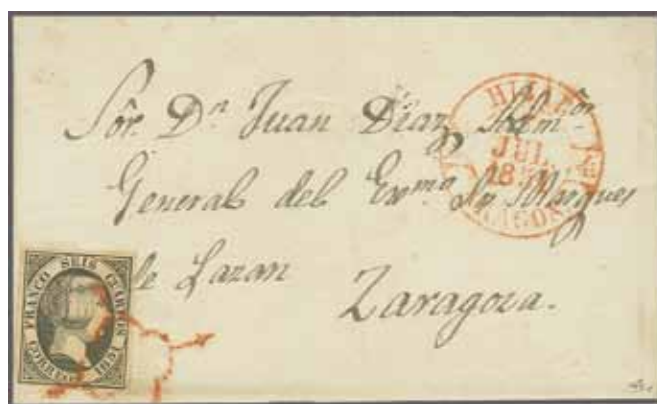 Sõr. Dn. Juan Diaz, Adm.õr
General del Exmo. Sr. Marques
de Lazan
Zaragoza.
JUL.
FRANCO SEIS CUARTOS
CORREOS 1851